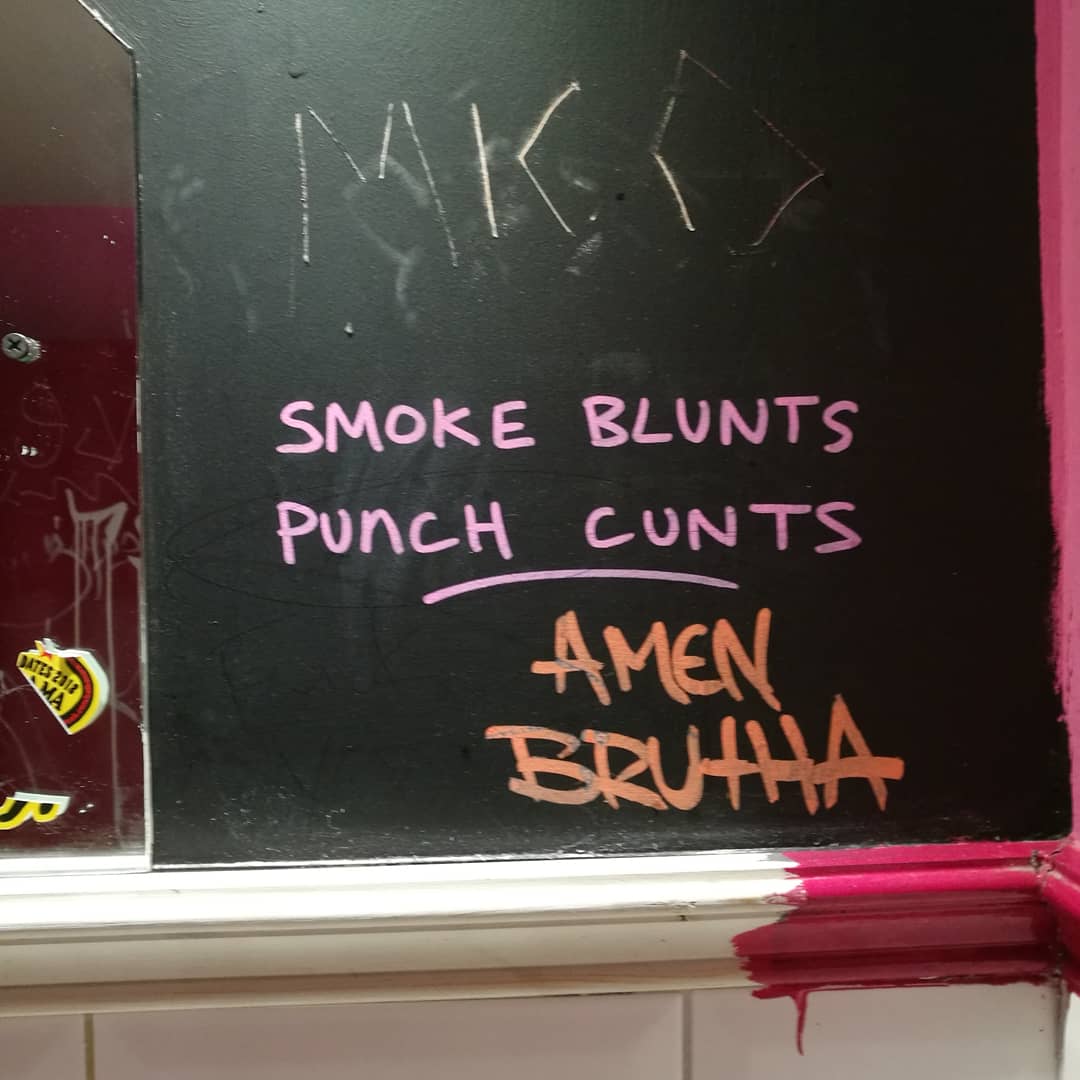 MKO
SMOKE BLUNTS
PUnCH CUNTS
AMEN
BRUTHA
DATES 2018